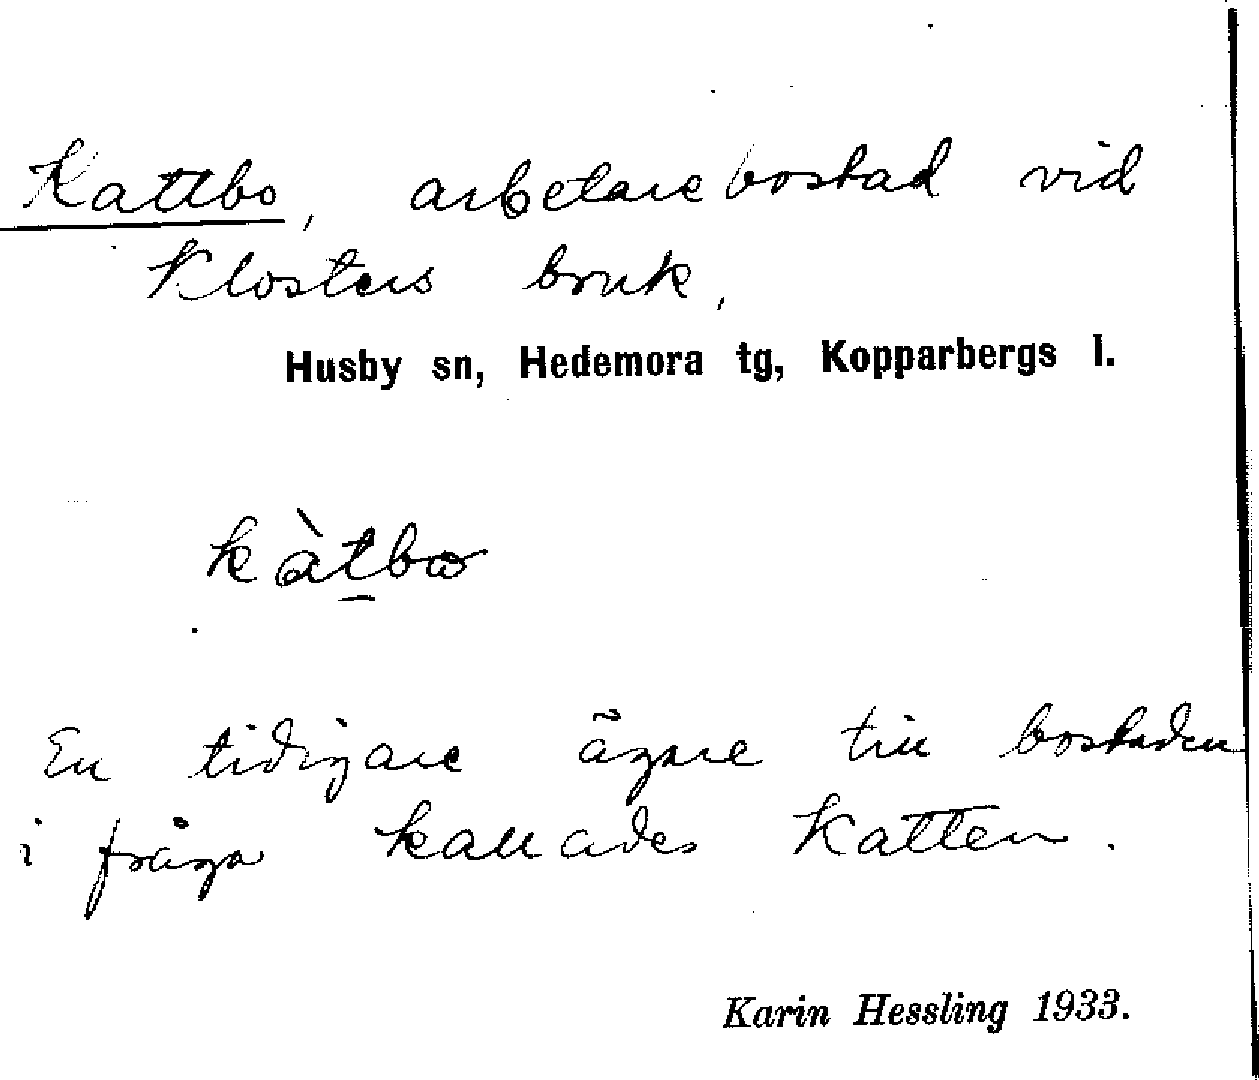 Kattbo, arbetarebostad vid
Klosters bruk,
Husby sn, Hedemora tg, Kopparbergs l.
kàtbo
En tidigare ägare till bostaden
i fråga kallades Katten.
Karin Hessling 1933.